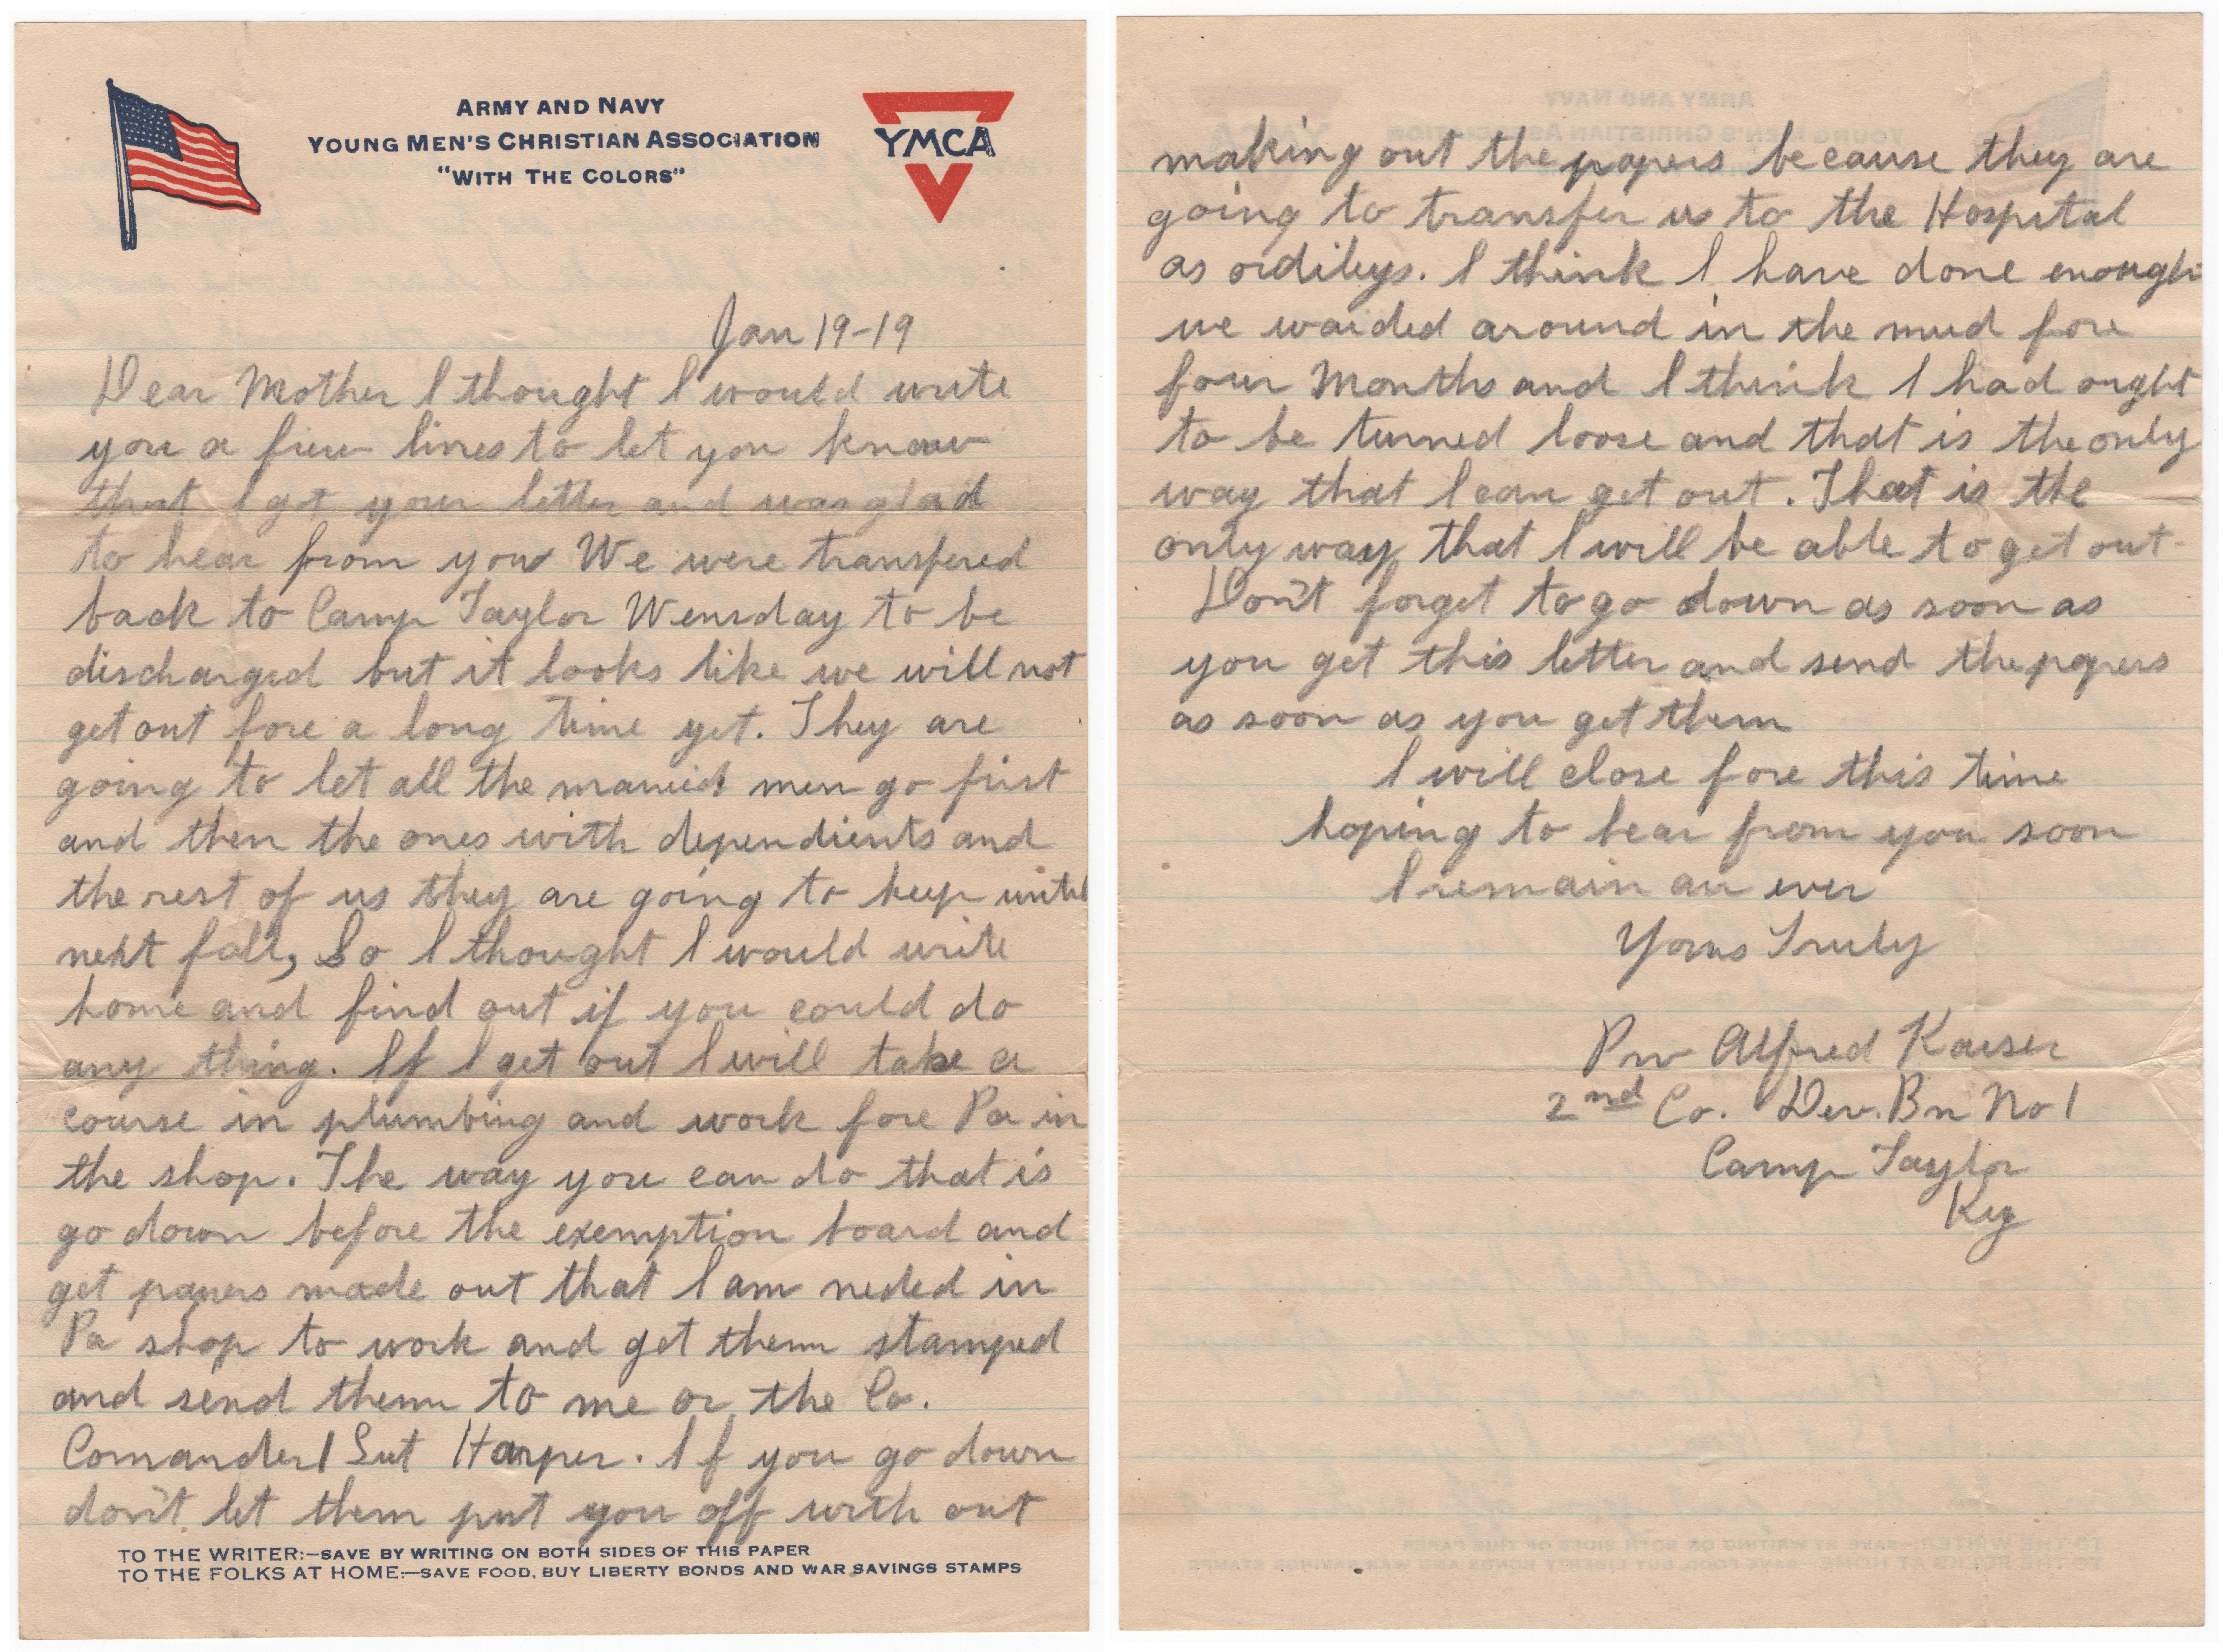 ARMY AND NAVY
YOUNG MEN'S CHRISTIAN ASSOCIATION
"WITH THE COLORS"
YMCA
Jan 19-19
Dear Mother I thought I would write
you a few lines to let you know
that I got your letter and was glad
to hear from you We were transfered
back to Camp Taylor Wensday to be
discharged but it looks like we will not
get out fore a long time yet. They are
going to let all the married men go first
and then the ones with dependients and
the rest of us they are going to keep until
next fall, So I thought I would write
home and find out if you could do
any thing. If I get out I will take a
course in plumbing and work fore Pa in
the shop. The way you can do that is
go down before the exemption board and
get papers made out that I am neded in
Pa shop to work and get them stamped
and send them to me or the Co.
Comander 1 Lut Harper. If you go down
don't let them put you off with out
TO THE WRITER:—SAVE BY WRITING ON BOTH SIDES OF THIS PAPER
TO THE FOLKS AT HOME:—SAVE FOOD, BUY LIBERTY BONDS AND WAR SAVINGS STAMPS
making out the papers because they are
going to transfer us to the Hospital
as ordileys. I think I have done enough
we waided around in the mud fore
four Months and I think I had ought
to be turned loose and that is the only
way that I can get out. That is the
only way that I will be able to get out.
Don't forget to go down as soon as
you get this letter and send the papers
as soon as you get them
I will close fore this time
hoping to hear from you soon
I remain as ever
Yorus Truly
Priv Alfred Kaiser
2nd Co. Dev. Bn No 1
Camp Taylor
Ky